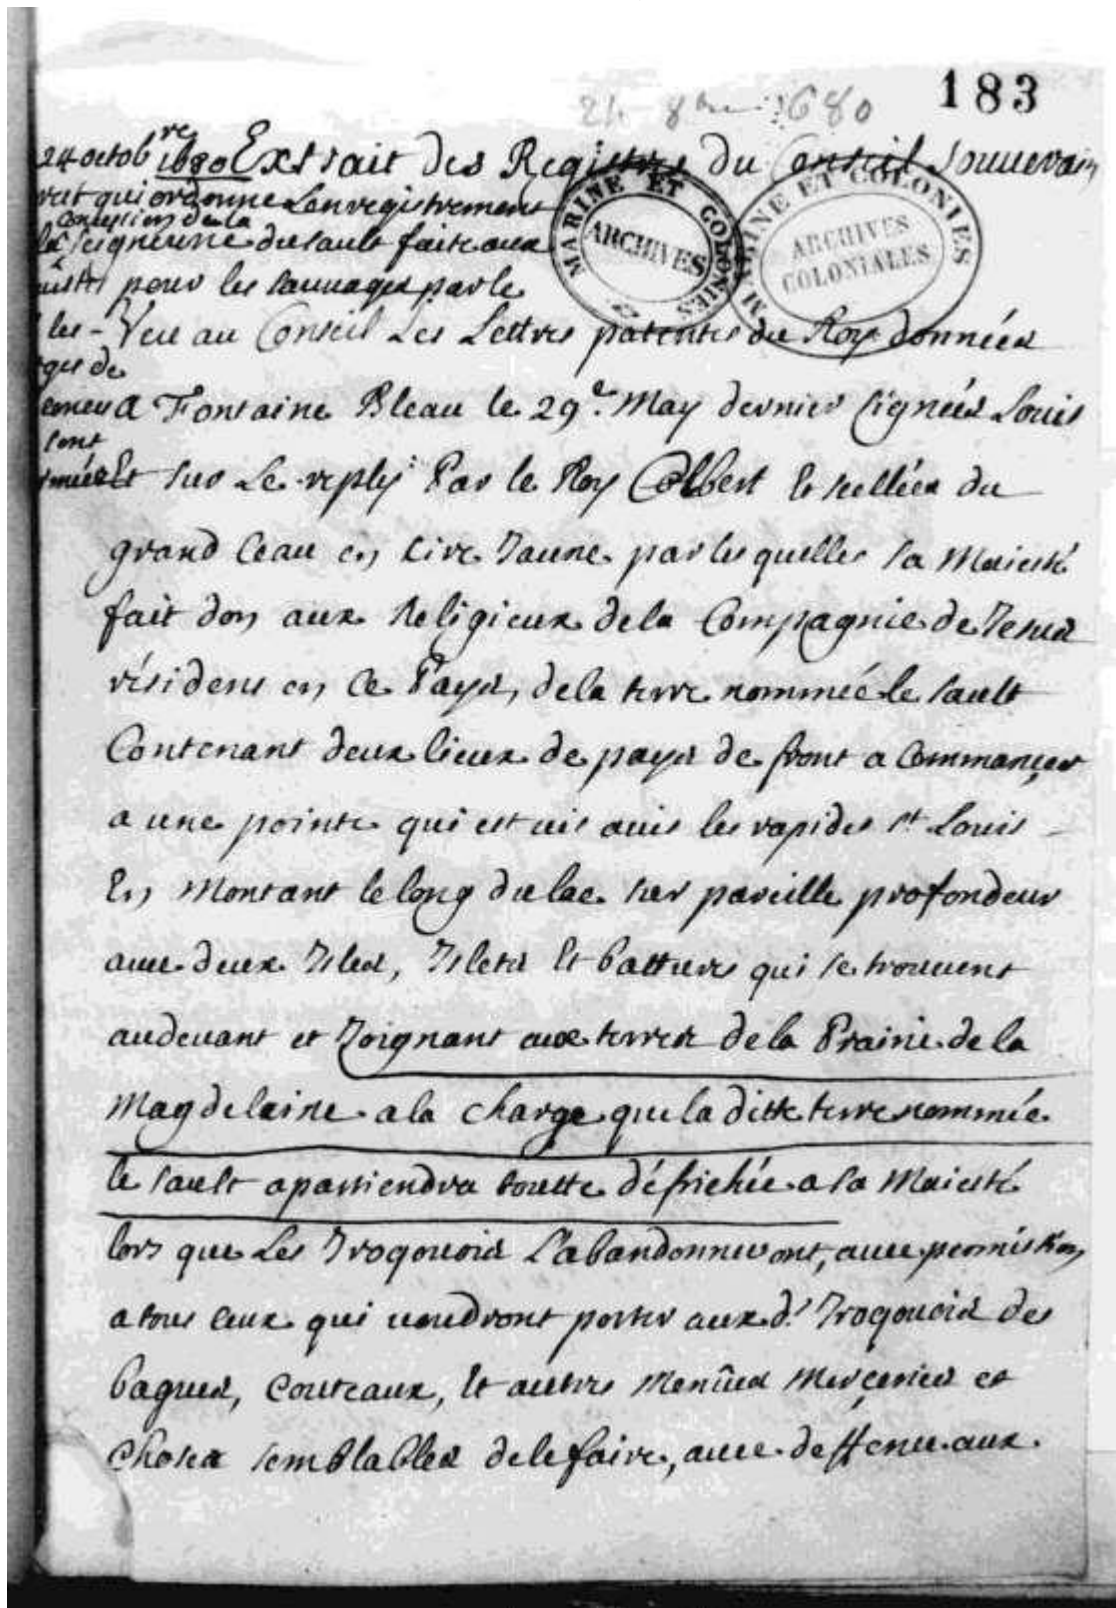 183
24 8bre 1680
24 octobre 1680 Extrait des Registres du Conseil Souuerain
qui ordonne Lenregistrement
Concession de la
Seigneurie du sault faite aux
pour les sauuages par le
les - Veu au Conseil Les Lettres patentes du Roy données
ges de
a Fontaine Bleau le 29e. May dernier signées Louis
sont
Et sur Le reply Par le Roy Colbert Et scellées du
grand Ceau en Cire Jaune par lesquelles sa Maiesté
fait don aux Religieux de la Compagnie de Jesus
résidens en ce Pays, de la terre nommée le sault
Contenant deux lieux de pays de front a Commançer
a une pointe qui est uis auis les rapides st. Louis
En Montant le long du lac sur pareille profondeur
auec deux Isles, Islets Et battures qui se trouuent
audeuant et Joignant aux terres de la Prairie de la
Magdelaine a la charge que la ditte terre nommée
le sault apartiendra toutte défrichée a sa Maiesté
lors que Les Iroquois L'abandonneront, auec permission
a tous ceux qui uoudront porter aux ds. Iroquois des
bagues, Couteaux, Et autres Menües Merçeries et
Choses semblables de le faire, auec deffense aux
MARINE ET COLONIES
ARCHIVES
MARINE ET COLONIES
ARCHIVES
COLONIALES